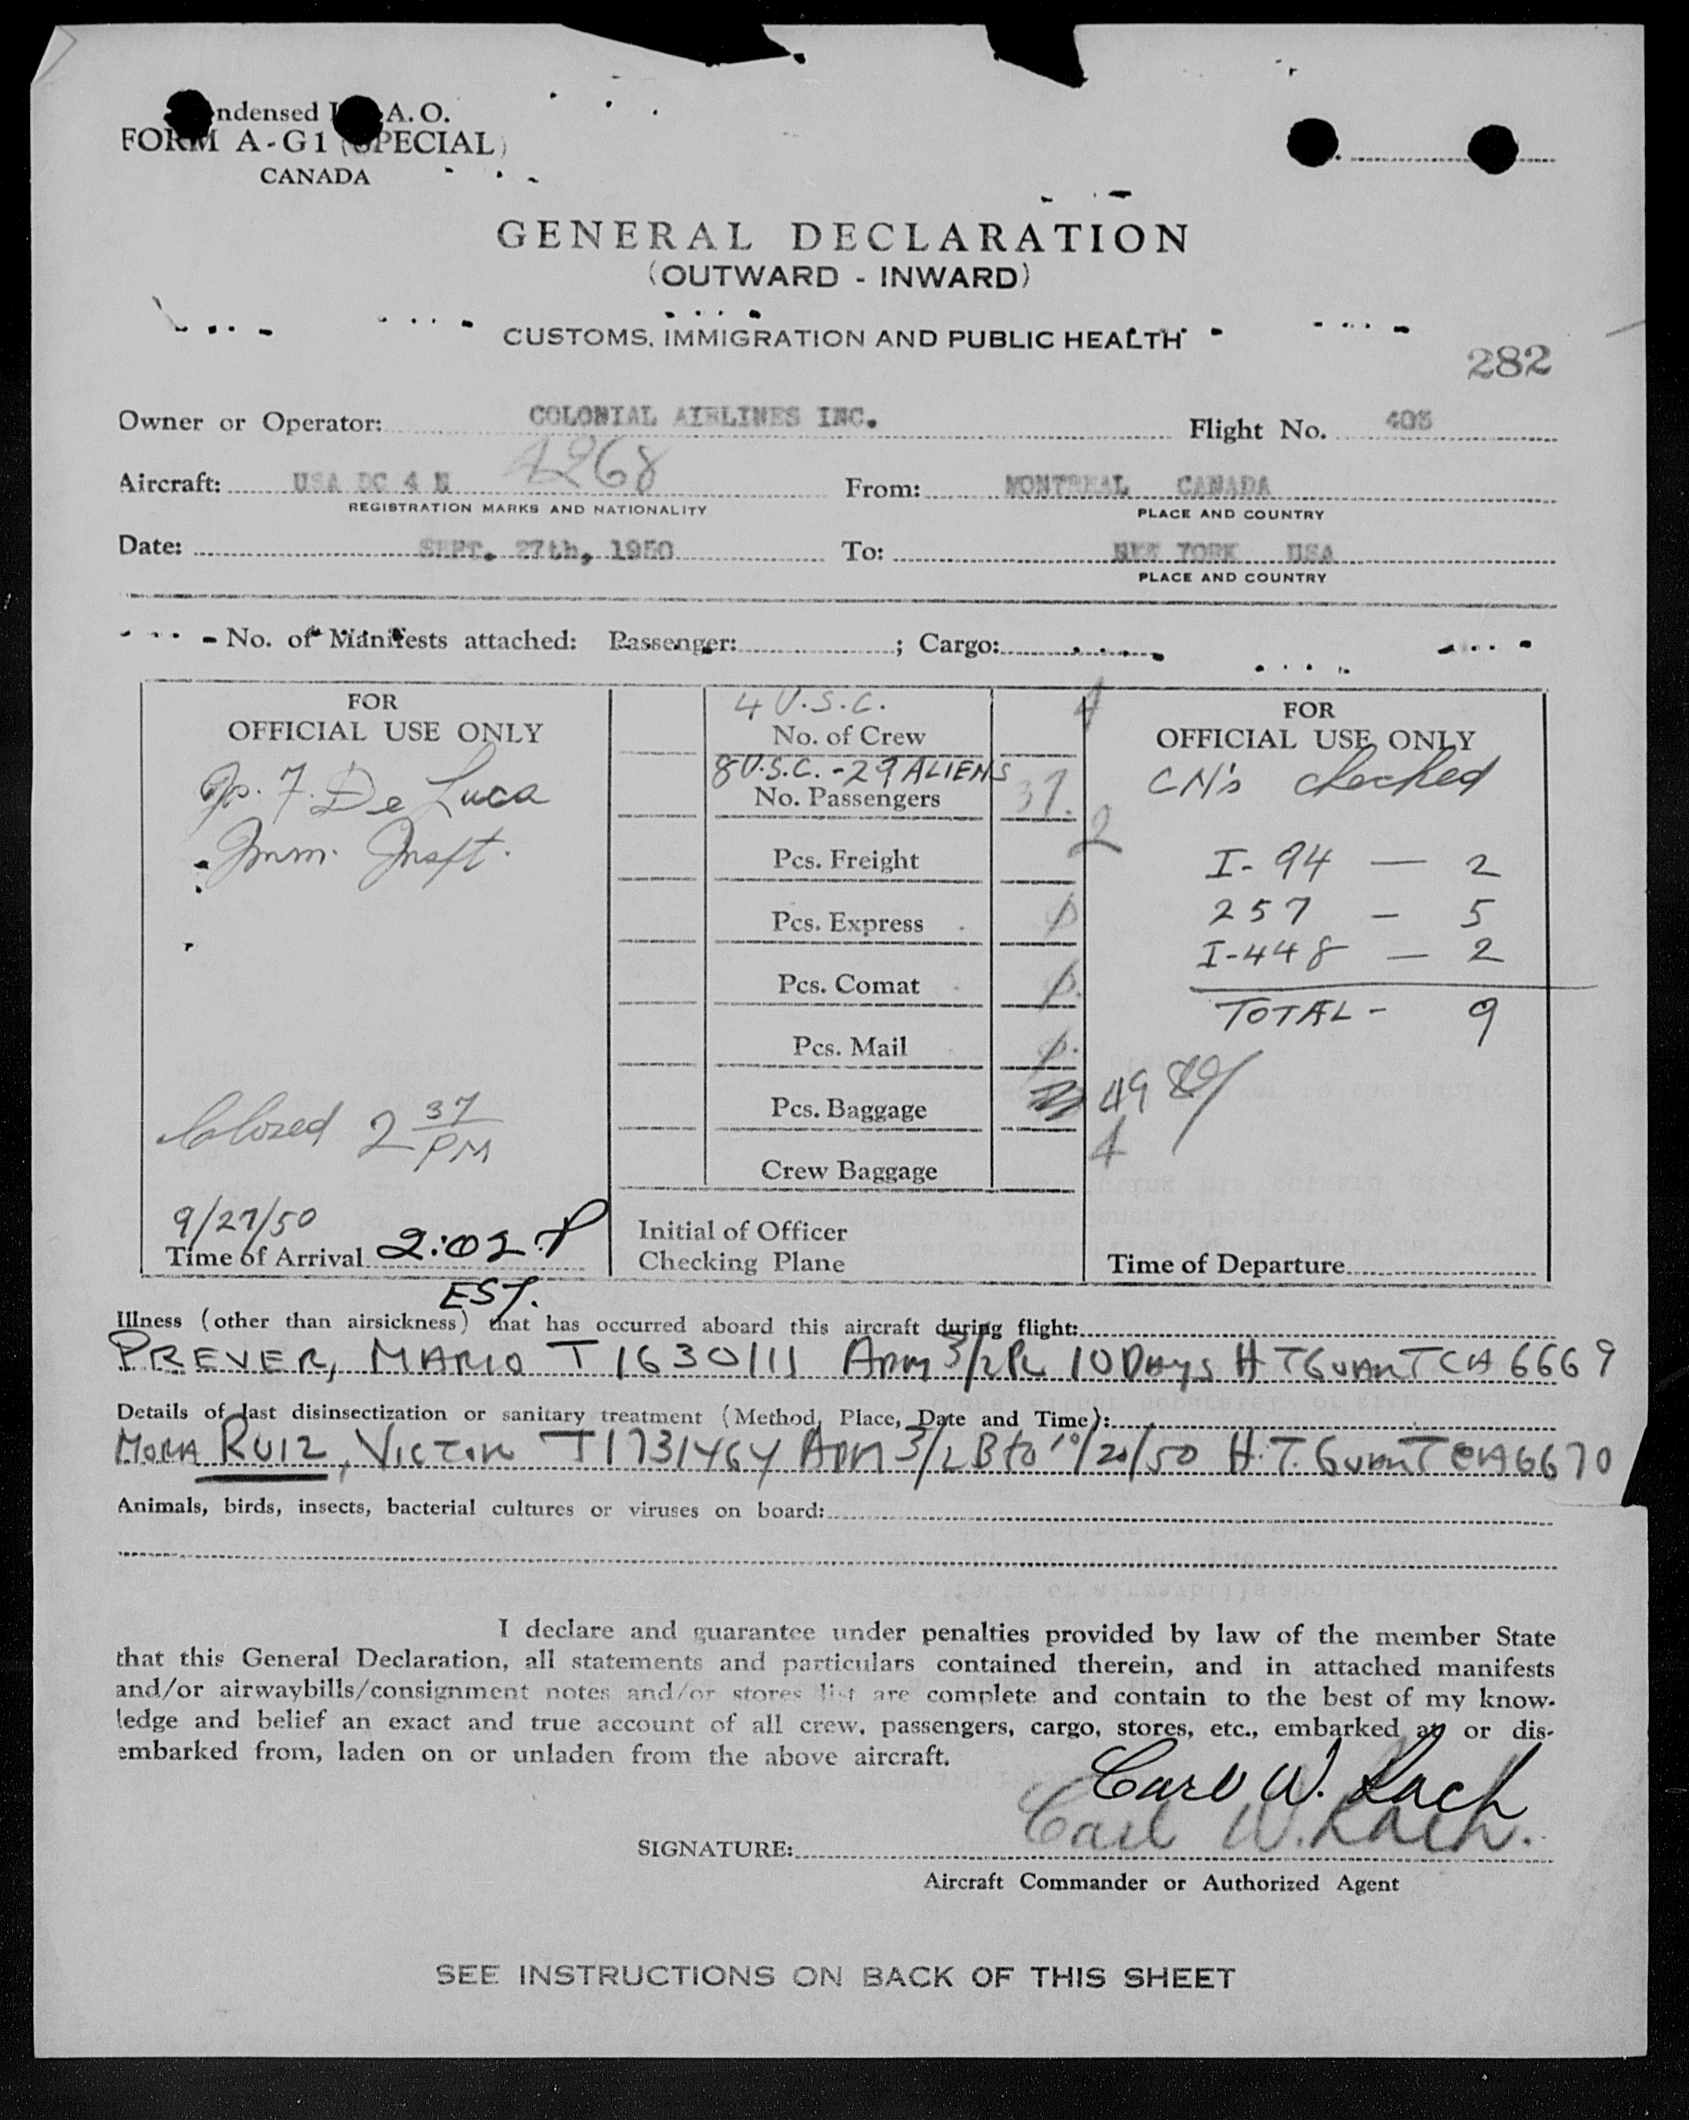 ndensed I A. O.
FORM A-G1 (SPECIAL)
CANADA
GENERAL DECLARATION
(OUTWARD - INWARD)
CUSTOMS, IMMIGRATION AND PUBLIC HEALTH
282
Owner or Operator: COLONIAL AIRLINES INC. Flight No. 403
4268
Aircraft: USA DC 4 N From: MONTREAL CANADA
REGISTRATION MARKS AND NATIONALITY PLACE AND COUNTRY
Date: SEPT. 27th, 1950 To: NEW YORK USA
PLACE AND COUNTRY
No. of Manifests attached: Passenger: ; Cargo:
FOR
OFFICIAL USE ONLY
F. De Luca
Imm. Inspt.
Closed 2 37 PM
9/27/50
Time of Arrival 2:02 P
EST.
4 U.S.C.
No. of Crew 4
8 U.S.C. - 29 ALIENS
No. Passengers 37.
2
Pcs. Freight
Pcs. Express
Pcs. Comat
Pcs. Mail
Pcs. Baggage 49
Crew Baggage 4
Initial of Officer
Checking Plane
FOR
OFFICIAL USE ONLY
CN's checked
I-94 — 2
257 — 5
I-448 — 2
TOTAL - 9
Time of Departure
Illness (other than airsickness) that has occurred aboard this aircraft during flight:
PREVER, MARIO T1630111 ADM 3/2 10 DAYS H T GUANT CIA 6669
Details of last disinsectization or sanitary treatment (Method, Place, Date and Time):
MORA RUIZ, VICTOR T1731464 ADM 3/2 B to 10/20/50 H.T. GUANT CIA 6670
Animals, birds, insects, bacterial cultures or viruses on board:
I declare and guarantee under penalties provided by law of the member State
that this General Declaration, all statements and particulars contained therein, and in attached manifests
and/or airwaybills/consignment notes and/or stores list are complete and contain to the best of my know-
ledge and belief an exact and true account of all crew, passengers, cargo, stores, etc., embarked an or dis-
embarked from, laden on or unladen from the above aircraft.
Carl W. Rach
Carl W. Rach.
SIGNATURE:
Aircraft Commander or Authorized Agent
SEE INSTRUCTIONS ON BACK OF THIS SHEET